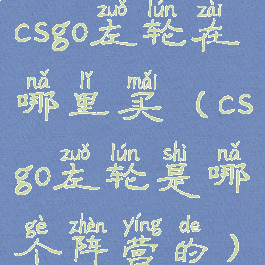 zuǒ lún zài
csgo左轮在
nǎ lǐ mǎi
哪里买(cs
zuǒ lún shì nǎ
go左轮是哪
gè zhèn yíng de
个阵营的)